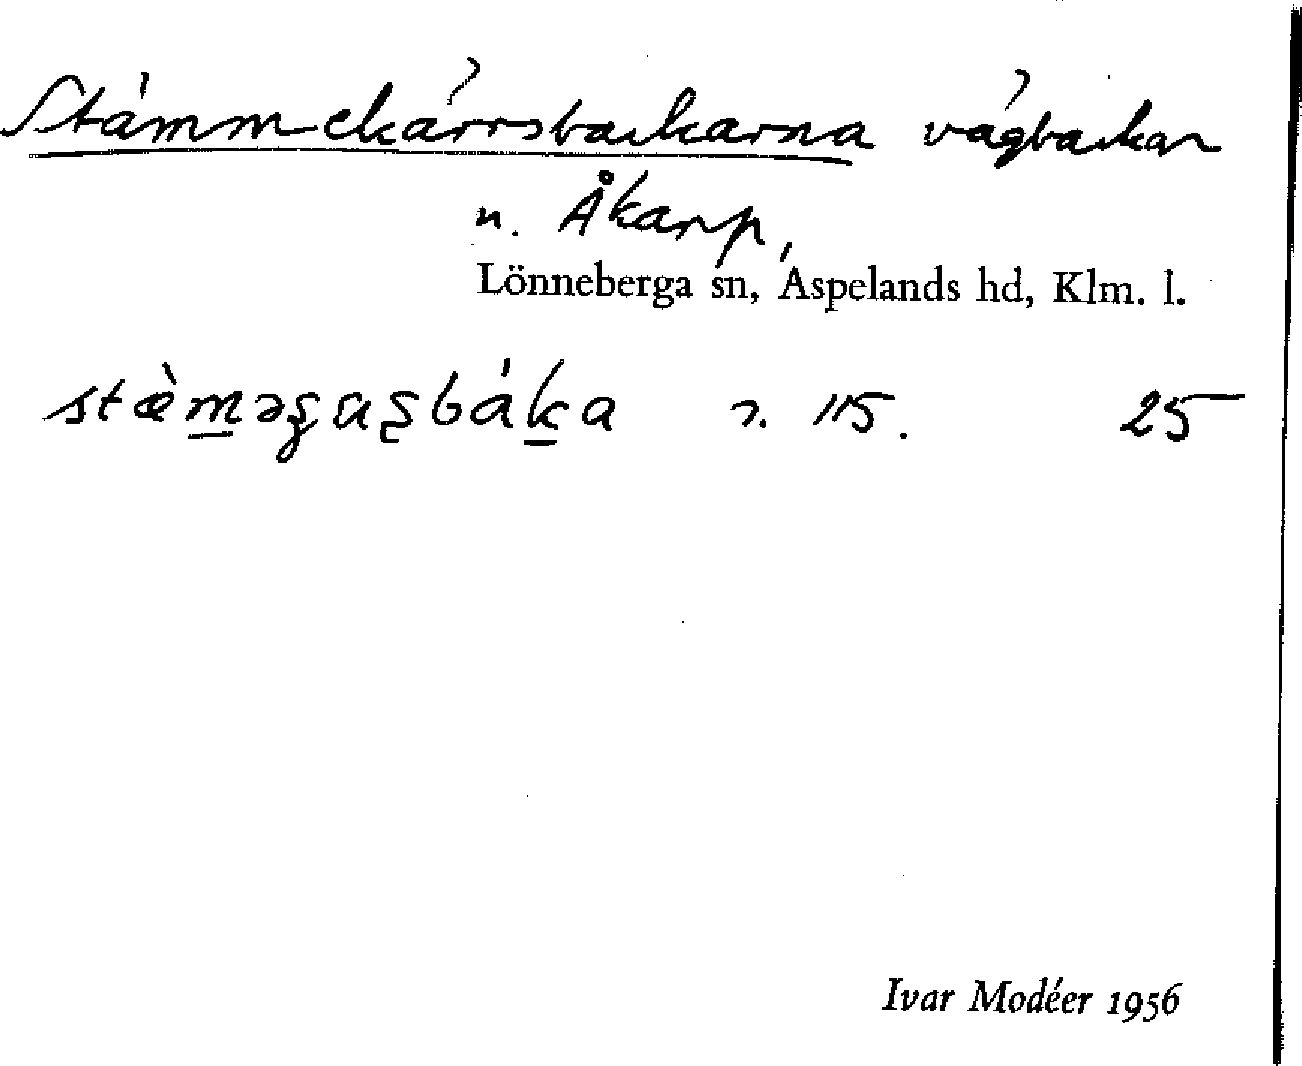 Stämmekärrsbackarna vägbackar
n. Åkarp,
Lönneberga sn, Aspelands hd, Klm. l.
r. 115. 25
Ivar Modéer 1956